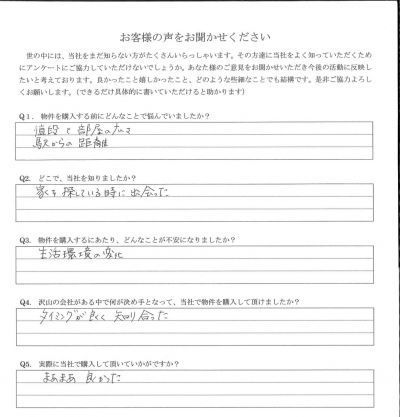 お客様の声をお聞かせください
世の中には、当社をまだ知らない方がたくさんいらっしゃいます。その方達に当社をよく知っていただくため
にアンケートにご協力していただけないでしょうか。あなた様のご意見をお聞かせいただき今後の活動に反映し
たいと考えております。良かったこと嬉しかったこと、どのような些細なことでも結構です。是非ご協力よろし
くお願いします。（できるだけ具体的に書いていただけると助かります）
Q1. 物件を購入する前にどんなことで悩んでいましたか？
値段と部屋の広さ
駅からの距離
Q2. どこで、当社を知りましたか？
家を探している時に出会った
Q3. 物件を購入するにあたり、どんなことが不安になりましたか？
生活環境の変化
Q4. 沢山の会社がある中で何が決め手となって、当社で物件を購入して頂けましたか？
タイミングが良く知り合った
Q5. 実際に当社で購入して頂いていかがですか？
まあまあ良かった